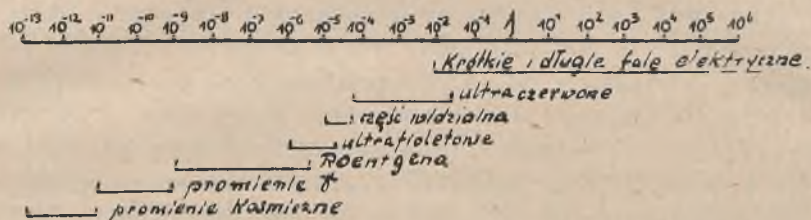 10⁻¹³ 10⁻¹² 10⁻¹¹ 10⁻¹⁰ 10⁻⁹ 10⁻⁸ 10⁻⁷ 10⁻⁶ 10⁻⁵ 10⁻⁴ 10⁻³ 10⁻² 10⁻¹ 1 10¹ 10² 10³ 10⁴ 10⁵ 10⁶
Krótkie i długie fale elektryczne.
ultraczerwone
część widzialna
ultrafioletowe
Roentgena
promienie γ
promienie Kosmiczne